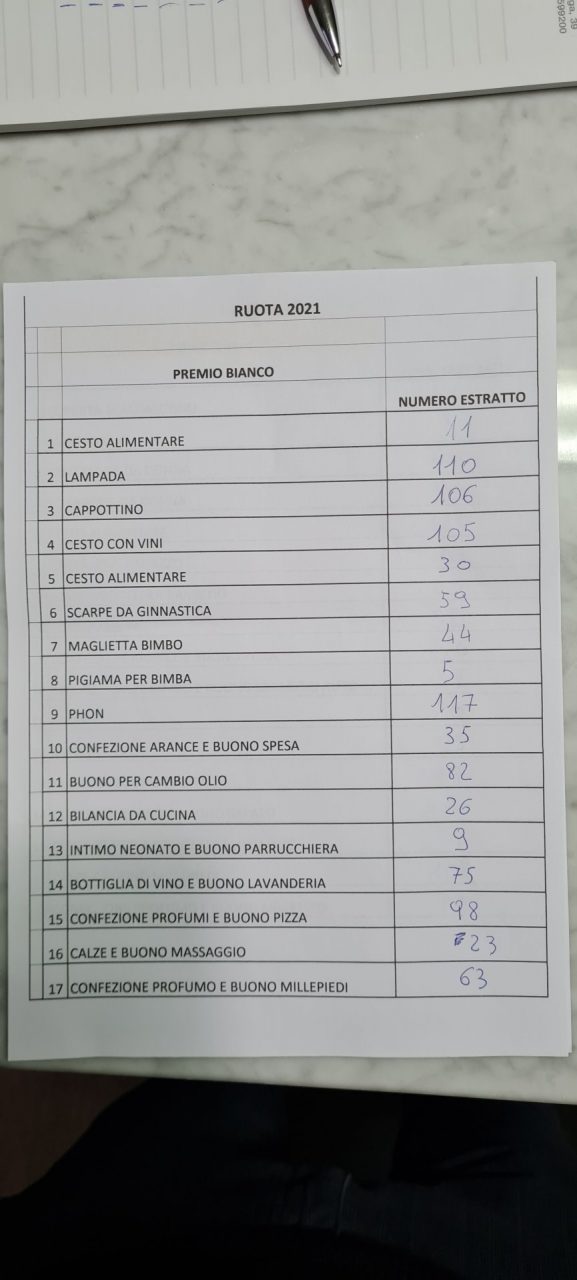 ga, 39
599200
RUOTA 2021
PREMIO BIANCO
NUMERO ESTRATTO
1 CESTO ALIMENTARE 11
2 LAMPADA 110
3 CAPPOTTINO 106
4 CESTO CON VINI 105
5 CESTO ALIMENTARE 30
6 SCARPE DA GINNASTICA 59
7 MAGLIETTA BIMBO 44
8 PIGIAMA PER BIMBA 5
9 PHON 117
10 CONFEZIONE ARANCE E BUONO SPESA 35
11 BUONO PER CAMBIO OLIO 82
12 BILANCIA DA CUCINA 26
13 INTIMO NEONATO E BUONO PARRUCCHIERA 9
14 BOTTIGLIA DI VINO E BUONO LAVANDERIA 75
15 CONFEZIONE PROFUMI E BUONO PIZZA 98
16 CALZE E BUONO MASSAGGIO 23
17 CONFEZIONE PROFUMO E BUONO MILLEPIEDI 63